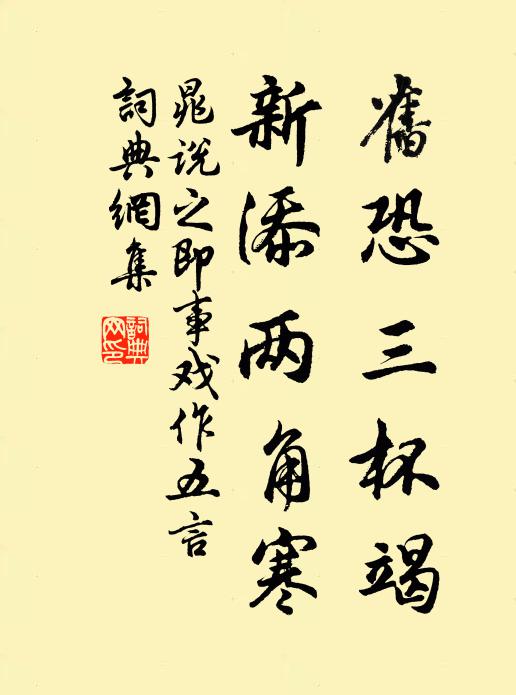 舊恐三杯竭
新添两角寒
晁说之即事戏作五言
詞典網集
詞典网印